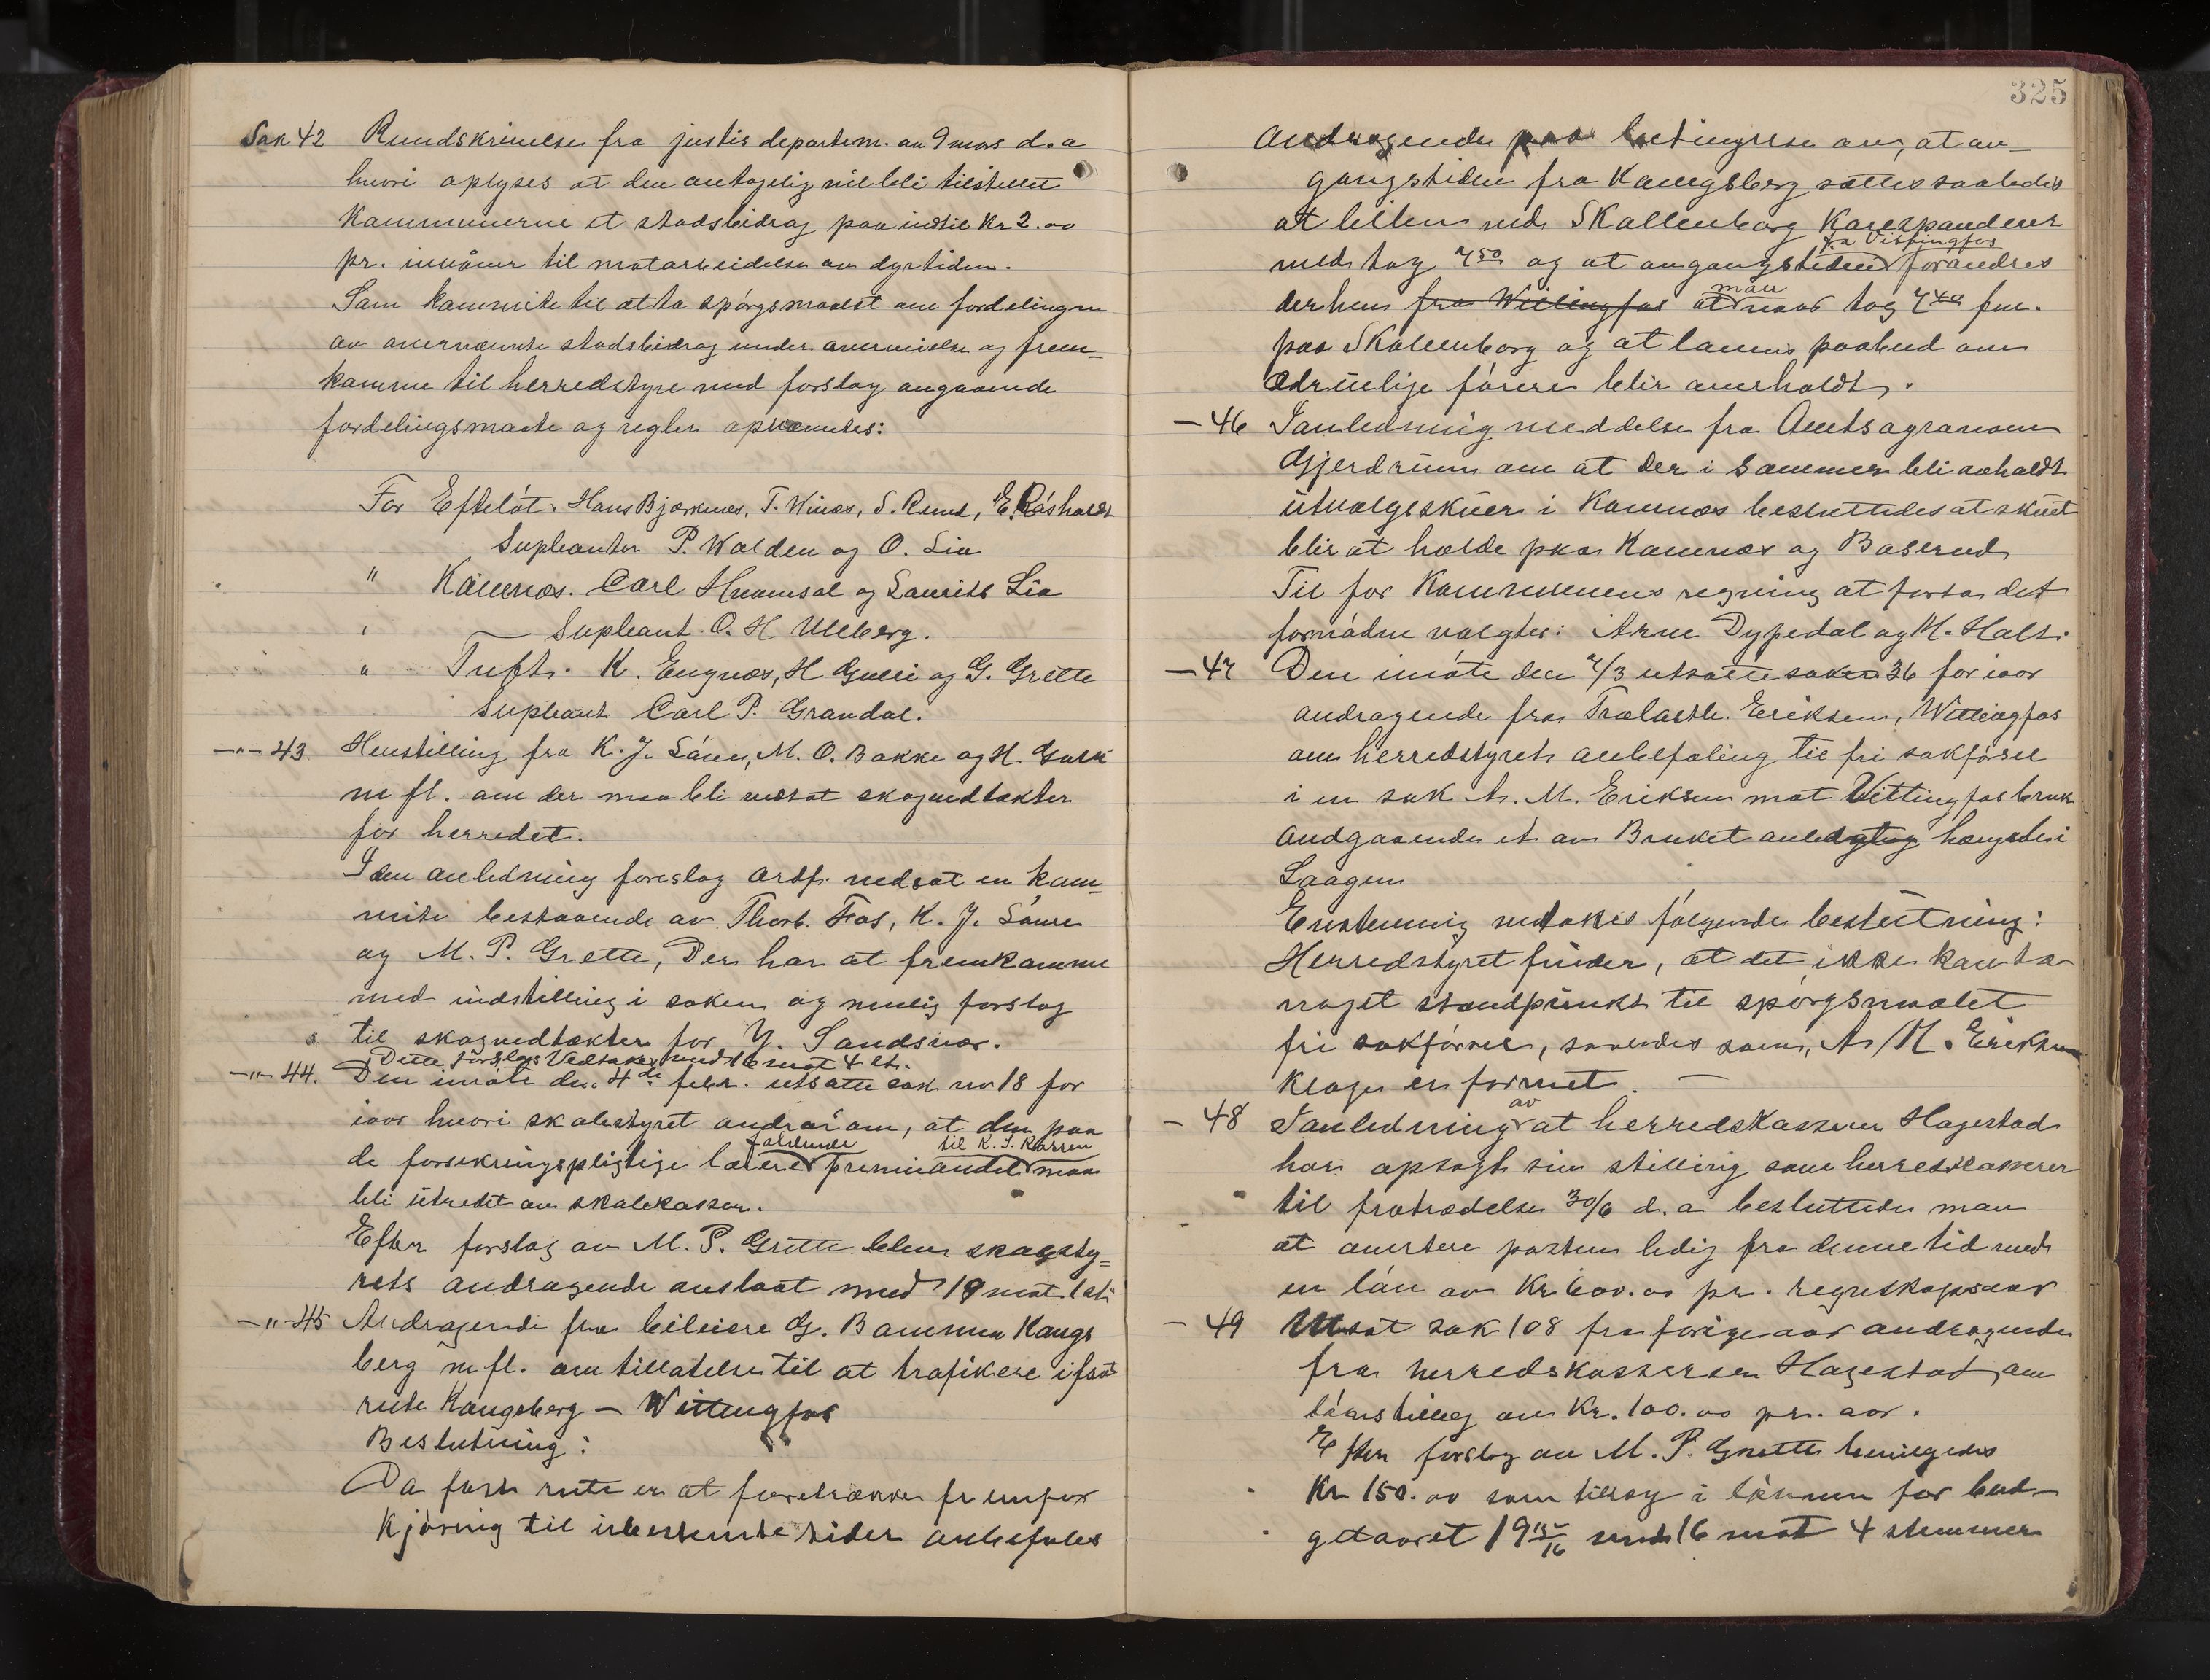 Sak 42 Rundskrivelse fra justisdepartem. av 9 mars d.a
hvori oplyses at den antagelig vil bli tilstillet
Kommunerne et stadsbidrag paa indtil Kr 2.00
pr. innvåner til motarbeidelse av dyrtiden.
Som kommite til at ta spørgsmaalet om fordelingen
av overnævnte stadsbidrag under overveielse og frem=
komme til herredstyre med forslag angaaende
fordelingsmaate og regler opnævntes:
For Efteløt. Hans Bjørknes, T. Winæs, S. Rund, E. Råsholdt
Supleanter P. Walden og O. Lia
" Komnæs. Carl Hvamsal og Laurits Lia
Supleant O. H Ulleberg.
" Tuft. K. Engnæs, H Gulli og G. Grette
Supleant Carl P. Grandal.
—"— 43. Henstilling fra K. J. Såner, M. O. Bakke og H. Gulli
m fl. om der maa bli vedtat skogvedtækter
for herredet.
I den anledning foreslog ordf. nedsat en kom=
mite bestaaende av Thorb. Fos, K. J. Såner
og M. P. Grette, Der har at fremkomme
med indstilling i saken og mulig forslag
til skogvedtækter for Y. Sandsvær.
Dette forslag Vedtages med 16 mot 4 st.
—"— 44. Den i møte den 4de febr. utsatte sak no 18 for
iaar hvori skolestyret andrar om, at den paa
faldende til K. S. Kassen
de forsikringspligtige lærere premieandel maa
bli utredet av skolekassen.
Efter forslag av M. P. Grette blev skolesty=
rets andragende avslaat med 19 mot 1 st.
—"— 45 Andragende fra bileiere G. Bammen Kongs
berg m fl. om tillatelse til at trafikere i fast
rute Kongsberg — Wittingfos
Beslutning:
Da fast rute er at foretrække fremfor
Kjøring til ubestemte tider anbefales
325
Andragende paa betingelse av, at av-
gangstiden fra Kongsberg sættes saaledes
at bilen ved Skollenborg Korresponderer
fra Vittingfos
med tog 7 50 og at avgangstiden forandres
man
derhen fra Wittingfos at naar tog 7 40 fm.
paa Skollenborg og at lovens paabud om
ædruelige førere blir overholdt.
— 46 I anledning meddelse fra Amtsagronom
Gjerdrum om at der i sommer bli avholdt
utvalgsskuer i Komnæs besluttedes at skuet
blir at holde paa Komnæs og Baserud
Til for Kommunens regning at foreta det
fornødne valgtes: Arne Dypedal og H. Holt.
— 47 Den i møte den 2/3 utsatte sak 36 for iaar
andragende fra Trælasth. Eriksen, Wittingfos
om herredstyrets anbefaling til fri sakførsel
i en sak A. M. Eriksen mot Vittingfos bruk
andgaaende et av Bruket anlagt hængsle i
Laagen
Enstemmig vedtokes følgende beslutning:
Herredstyret finder, at det ikke kan ta
noget standpunkt til spørgsmaalet
fri sakførsel, saaledes som A. M. Eriksens
klage er formet. —
av
— 48 I anledning at herredskasserer Hagestad
har opsagt sin stilling som herredskasserer
til fratrædelse 30/6 d.a besluttedes man
at avertere posten ledig fra denne tid med
en løn av Kr 600.00 pr. regnskapsaar
— 49 Utsat sak 108 fra forige aar andragende
fra herredskasserer Hagestad om
lønstillæg av Kr. 100.00 pr. aar.
Efter forslag av M. P. Grette bevilgedes
Kr 150.00 som tillæg i lønnen for bud-
getaaret 1915/16 med 16 mot 4 stemmer